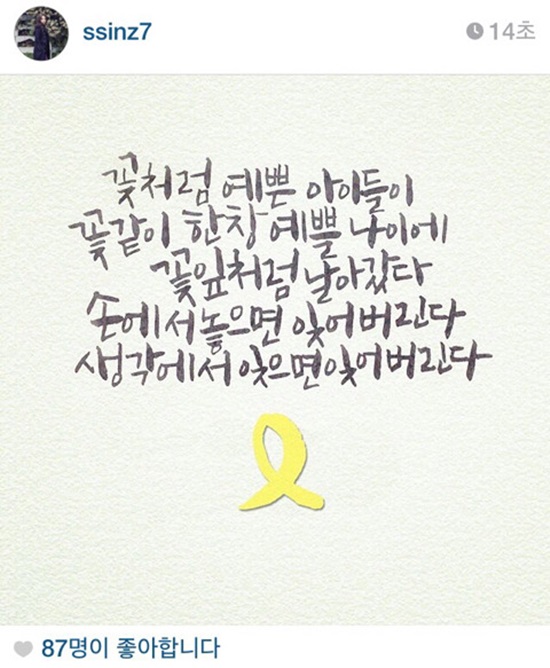 ssinz7
14초
꽃처럼 예쁜 아이들이
꽃같이 한창 예쁠 나이에
꽃잎처럼 날아갔다
손에서 놓으면 잊어버린다
생각에서 잊으면 잊어버린다
87명이 좋아합니다